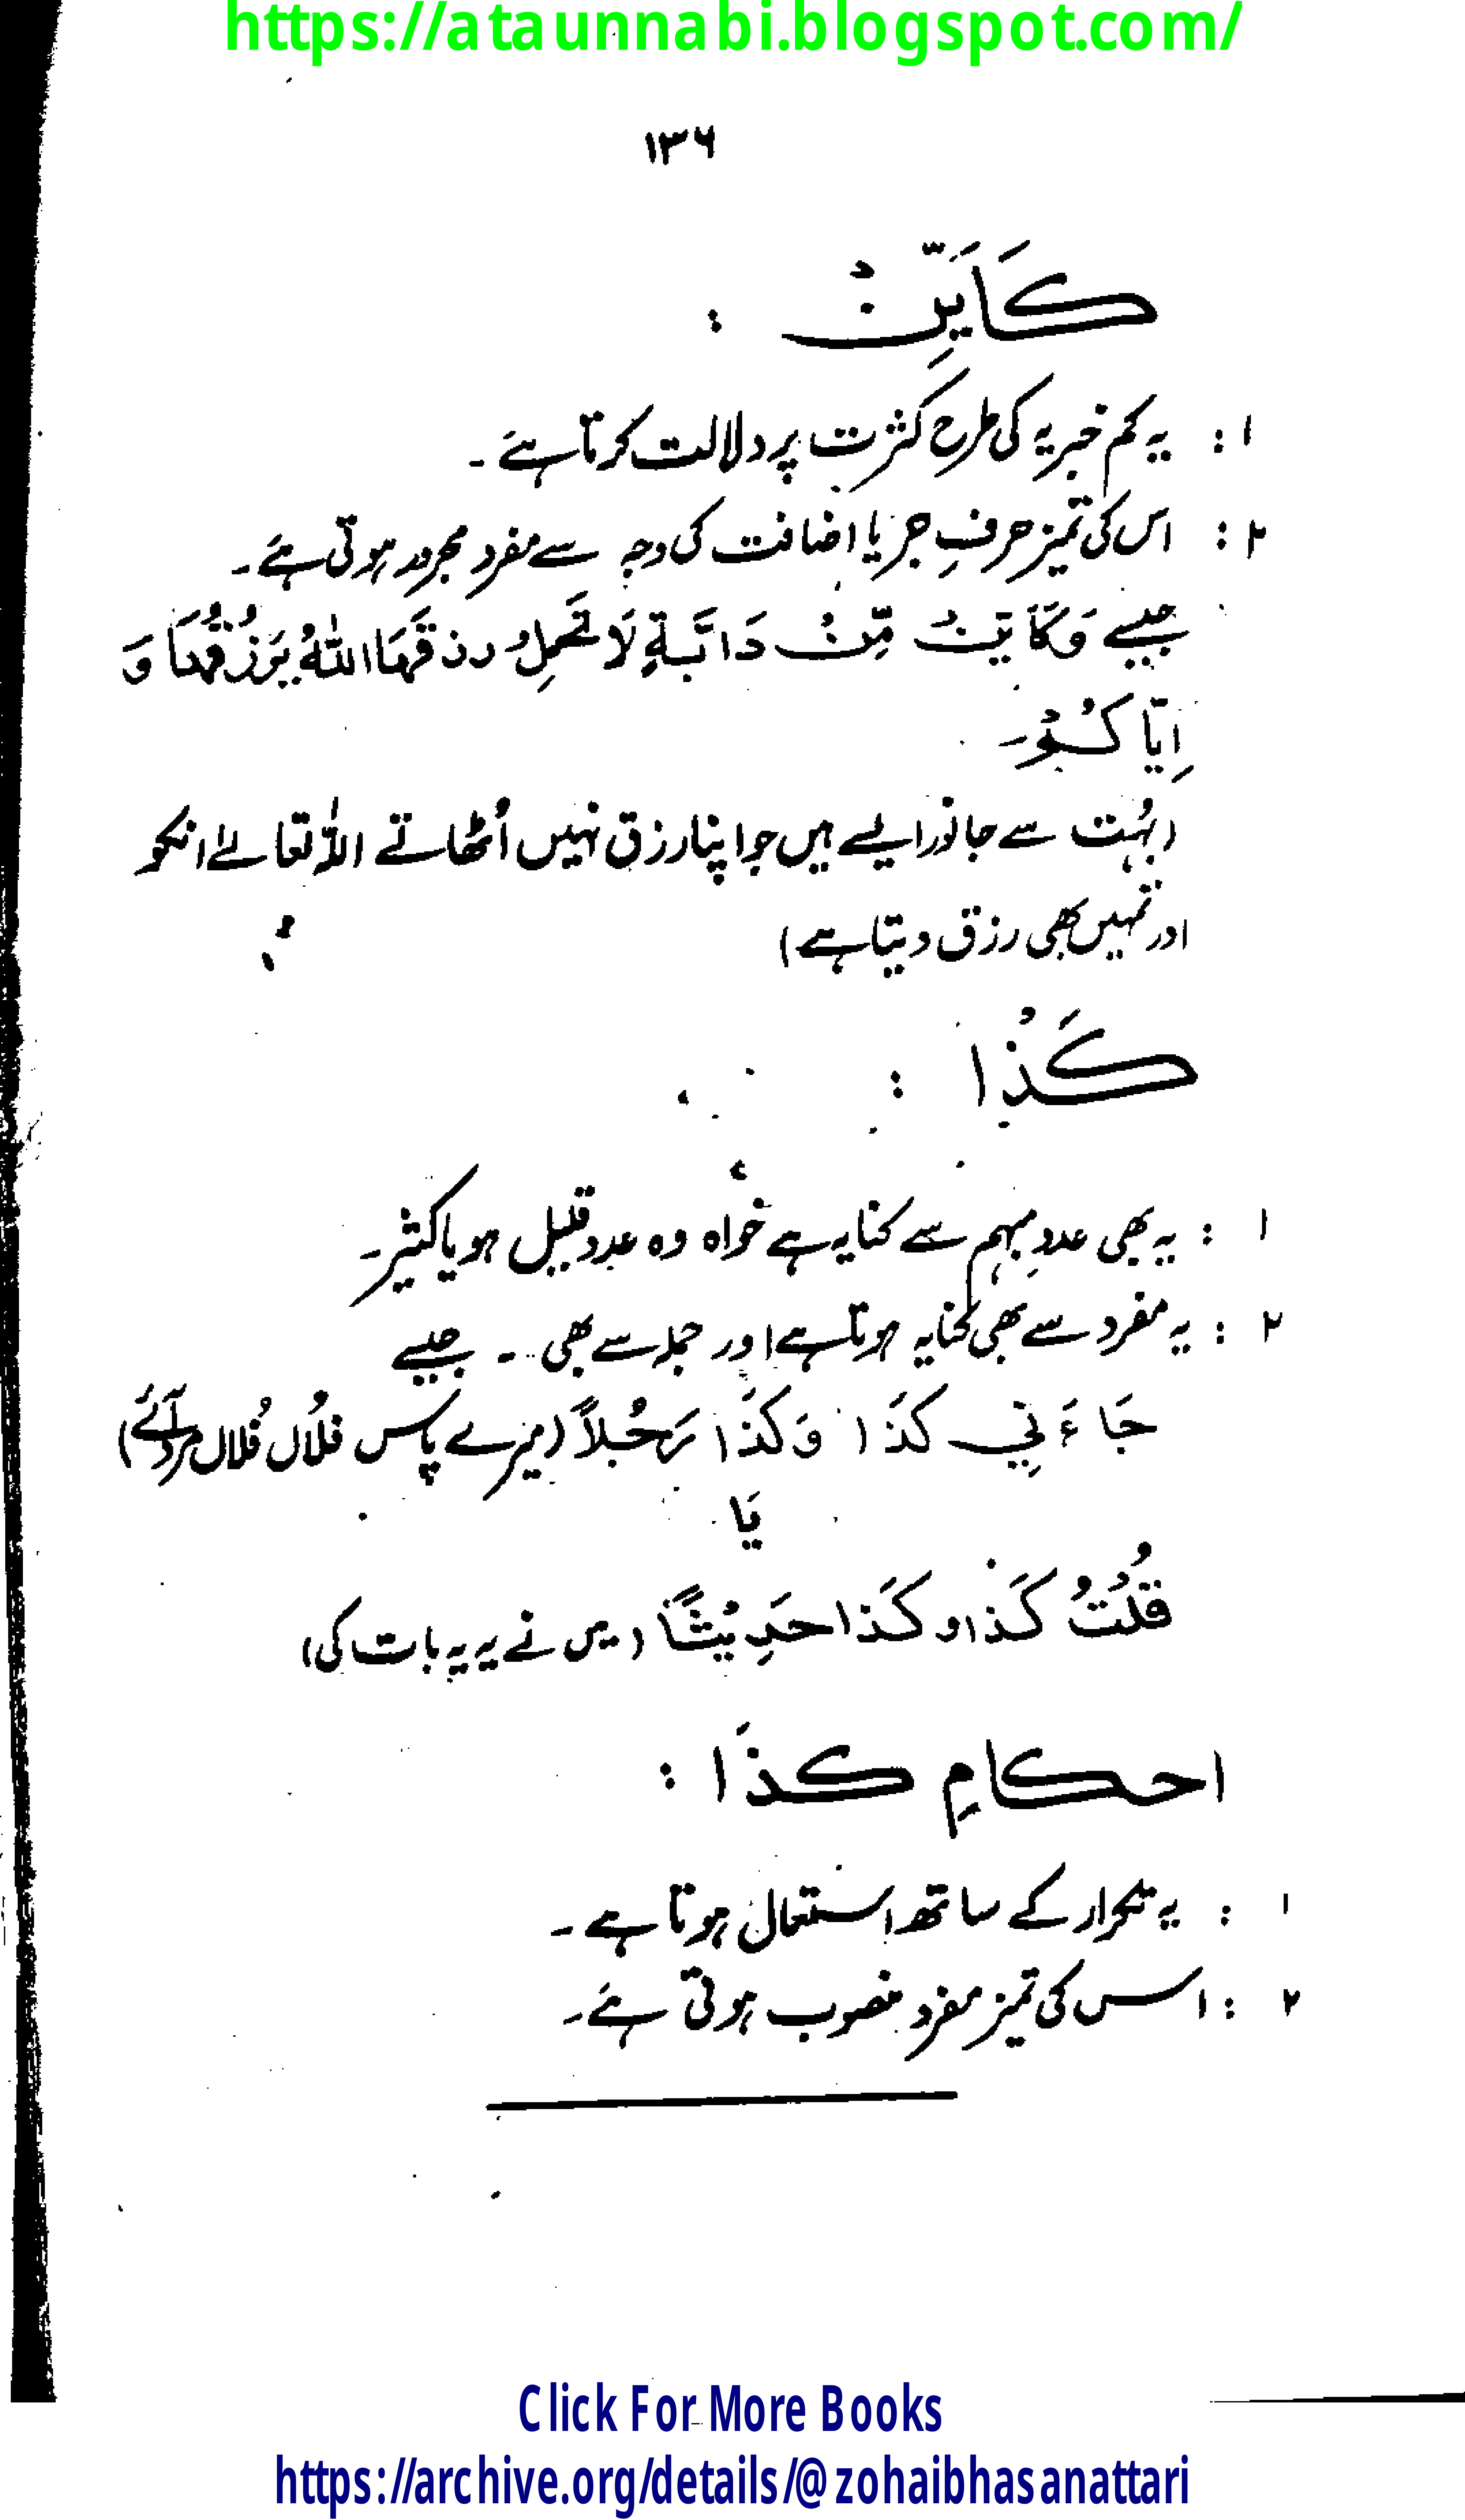 https://ataunnabi.blogspot.com/
۱۳۶
كَاَيِّنْ :
۱ : یہ کم خبریہ کی طرح کثرت پر دلالت کرتا ہے۔
۲ : اس کی تمیز حرفِ جر یا اضافت کی وجہ سے مفرد مجرور ہوتی ہے۔
جیسے وَكَاَيِّنْ مِّنْ دَابَّةٍ لَا تَحْمِلُ رِزْقَهَا اللّٰهُ يَرْزُقُهَا وَ
اِيَّاكُمْ۔
(بہُت سے جانور ایسے ہیں جو اپنا رزق نہیں اُٹھاتے اللّٰہ تعالےٰ انکو
اور تمہیں بھی رزق دیتا ہے)
كَذَا :
۱ : یہ بھی عددِ مبہم سے کنایہ ہے خواہ وہ عدد قلیل ہو یا کثیر۔
۲ : یہ مفرد سے بھی کنایہ ہوتا ہے اور جملہ سے بھی ۔ جیسے
جَاءَنِي كَذَا وَكَذَا رَجُلاً (میرے پاس فلاں فُلاں مرد آئے)
یَا
قُلْتُ كَذَا و كَذَا حَدِيْثًا (میں نے یہ یہ بات کی)
احکامِ کذَا :
۱ : یہ تکرار کے ساتھ استعمال ہوتا ہے۔
۲ : اس کی تمیز مفرد منصوب ہوتی ہے۔
Click For More Books
https://archive.org/details/@zohaibhasanattari